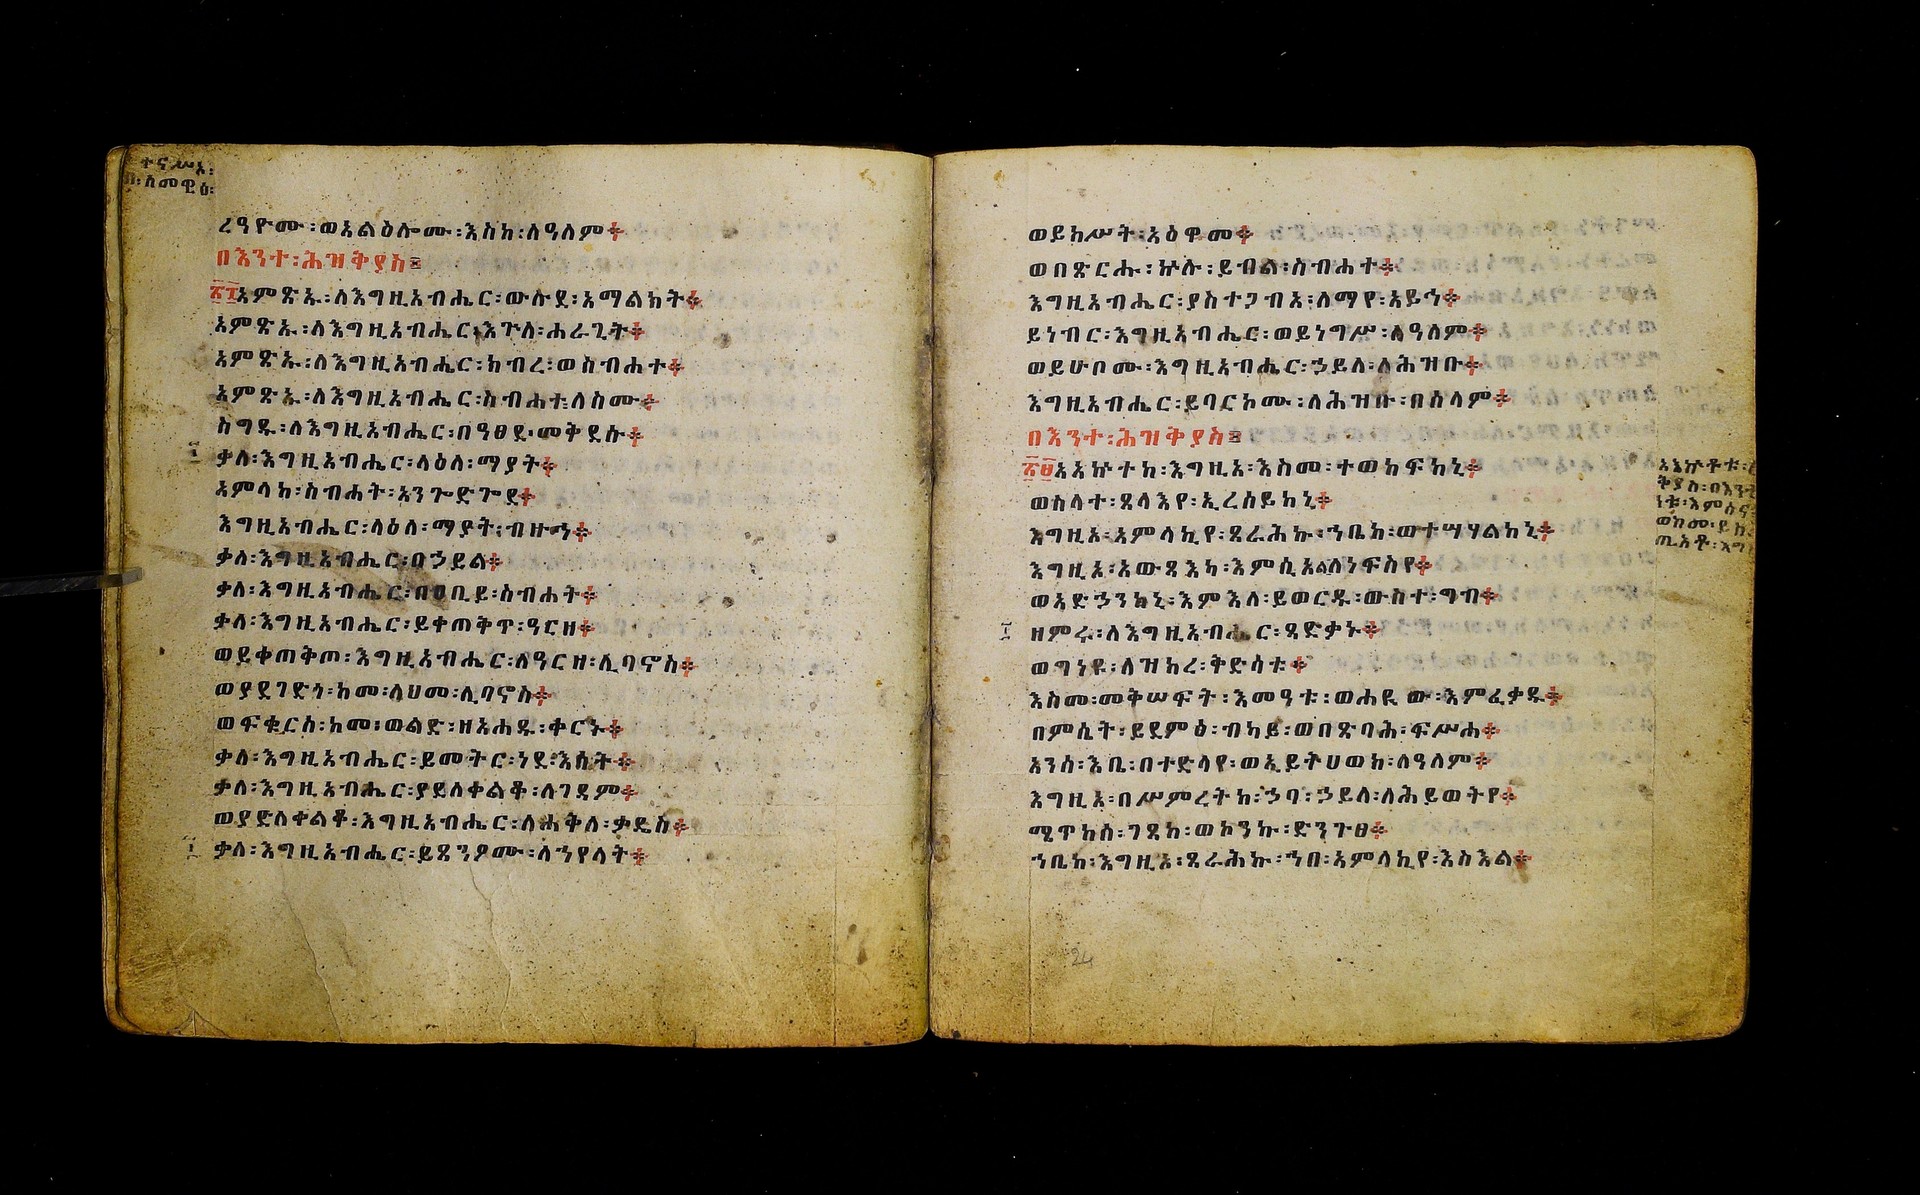 ተናሥአ፡
ሰመዊዕ፡
ረዓዮሙ፡ወአልዕሎሙ፡እስከ፡ለዓለም፨
በእንተ፡ሕዝቅያስ፨
፳፰አምጽኡ፡ለእግዚአብሔር፡ውሉደ፡አማልክት፨
አምጽኡ፡ለእግዚአብሔር፡እጕለ፡ሐራጊት፨
አምጽኡ፡ለእግዚአብሔር፡ክብረ፡ወስብሐተ፨
አምጽኡ፡ለእግዚአብሔር፡ስብሐተ፡ለስሙ፨
ስግዱ፡ለእግዚአብሔር፡በዓፀደ፡መቅደሱ፨
ቃለ፡እግዚአብሔር፡ላዕለ፡ማያት፨
አምላከ፡ስብሐት፡አንጐድጐደ፨
እግዚአብሔር፡ላዕለ፡ማያት፡ብዙኅ፨
ቃለ፡እግዚአብሔር፡በኃይል፨
ቃለ፡እግዚአብሔር፡በዐቢይ፡ስብሐት፨
ቃለ፡እግዚአብሔር፡ይቀጠቅጥ፡ዓርዘ፨
ወይቀጠቅጦ፡እግዚአብሔር፡ለዓርዘ፡ሊባኖስ፨
ወያደገድጎ፡ከመ፡ላህመ፡ሊባኖስ፨
ወፍቁርስ፡ከመ፡ወልድ፡ዘአሐዱ፡ቀርኑ፨
ቃለ፡እግዚአብሔር፡ይመትር፡ነደ፡እሳት፨
ቃለ፡እግዚአብሔር፡ያደለቀልቆ፡ለገዳም፨
ወያድለቀልቆ፡እግዚአብሔር፡ለሐቅለ፡ቃዴስ፨
ቃለ፡እግዚአብሔር፡ይጸንዖሙ፡ለኀየላት፨
ወይከሥት፡አዕዋመ፨
ወበጽርሑ፡ኵሉ፡ይብል፡ስብሐተ፨
እግዚአብሔር፡ያስተጋብእ፡ለማየ፡አይኅ፨
ይነብር፡እግዚአብሔር፡ወይነግሥ፡ለዓለም፨
ወይሁቦሙ፡እግዚአብሔር፡ኃይለ፡ለሕዝቡ፨
እግዚአብሔር፡ይባርኮሙ፡ለሕዝቡ፡በሰላም፨
በእንተ፡ሕዝቅያስ፨
፳፱አአኵተከ፡እግዚኦ፡እስመ፡ተወከፍከኒ፨
ወስላተ፡ጸላእየ፡ኢረሰይከኒ፨
እግዚኦ፡አምላኪየ፡ጸራሕኩ፡ኀቤከ፡ወተሣሃልከኒ፨
እግዚኦ፡አውጻእካ፡እምሲኦልለነፍስየ፨
ወአድኃንከኒ፡እምእለ፡ይወርዱ፡ውስተ፡ግብ፨
ዘምሩ፡ለእግዚአብሔር፡ጻድቃኑ፨
ወግነዩ፡ለዝክረ፡ቅድሳቱ፨
እስመ፡መቅሠፍት፡እመዓቱ፡ወሐዪው፡እምፈቃዱ፨
በምሴት፡ይደምፅ፡ብካይ፡ወበጽባሕ፡ፍሥሐ፨
አንሰ፡እቤ፡በተድላየ፡ወኢይትሀወክ፡ለዓለም፨
እግዚኦ፡በሥምረትከ፡ኃባ፡ኃይለ፡ለሕይወትየ፨
ሜጥከሰ፡ገጸከ፡ወኮንኩ፡ድንጉፀ፨
ኀቤከ፡እግዚኦ፡ጸራሕኩ፡ኀበ፡አምላኪየ፡እስእል፨
አአኵቶቱ፡
ቅያስ፡በእንተ
ወከመ፡ይከ
ጢአቶ፡እግ
24